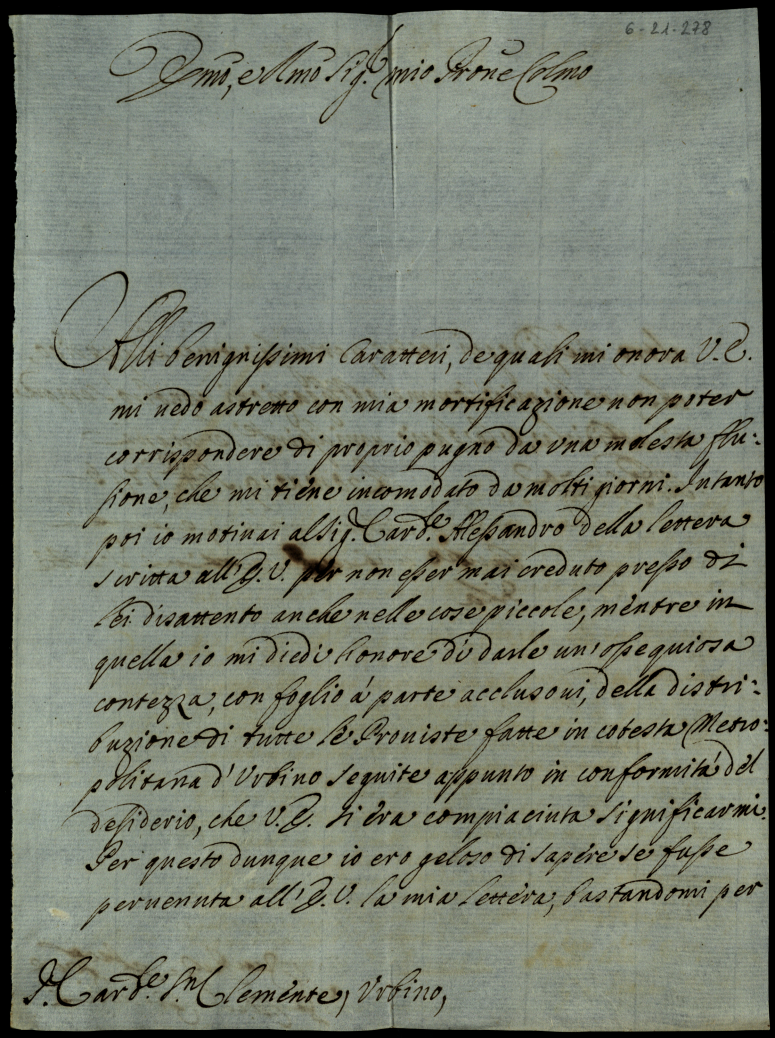 6-21-278
Emo, e Rmo Sig.r mio Prone Colmo
Alli benignissimi Caratteri, de quali mi onora V. E.
mi uedo astretto con mia mortificazione non poter
corrispondere di proprio pugno da vna molesta flu:
sione, che mi tiene incomodato da molti giorni. Intanto
poi io motiuai al Sig.r Card.e Alessandro della lettera
scritta all' E. V. per non esser mai creduto presso di
Lei disattento anche nelle cose piccole, mentre in
quella io mi diedi l'onore di darle un' ossequiosa
contezza, con foglio á parte acclusoui, della distri:
buzione di tutte le Prouiste fatte in cotesta Metro:
politana d'Vrbino seguite appunto in conformitá del
desiderio, che V. E. si era compiaciuta significarmi.
Per questo dunque io ero geloso di sapere se fusse
peruenuta all' E. V. la mia lettera, bastandomi per
S.r Card.e S.n Clemente, Vrbino,